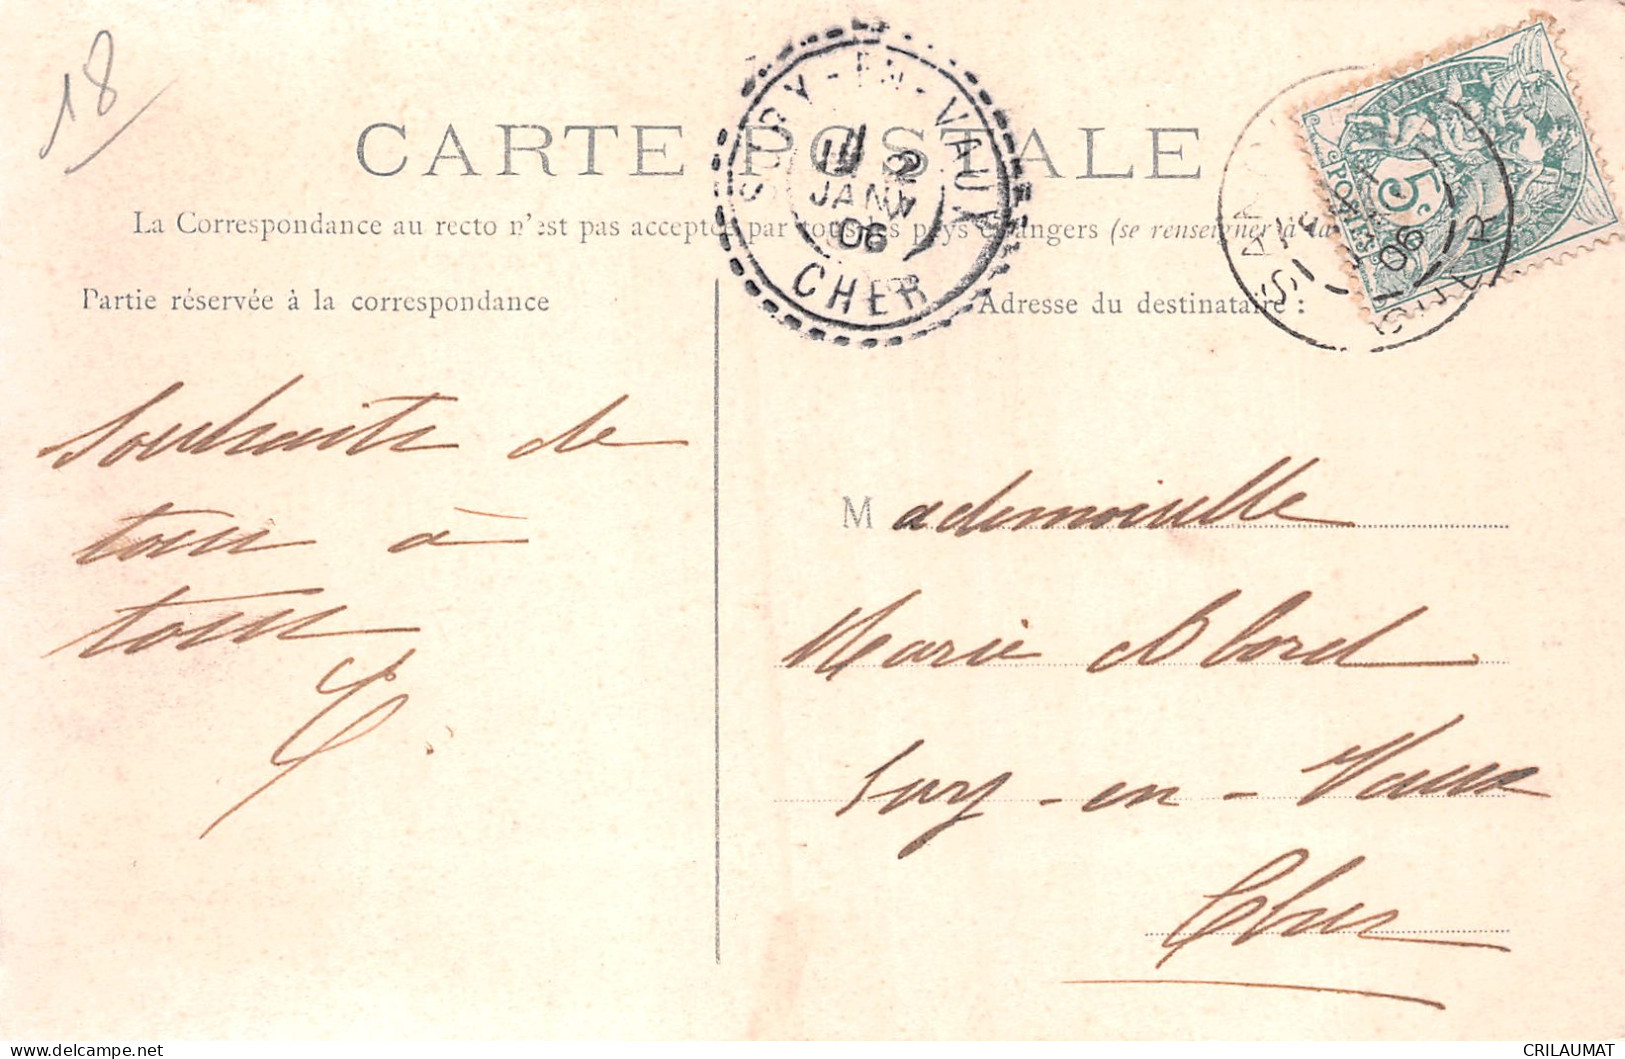 18
CARTE POSTALE
La Correspondance au recto n'est pas acceptée par tous les pays étrangers (se renseigner à la
Partie réservée à la correspondance
Adresse du destinataire :
SURY-EN-VAUX
2
JANV
06
CHER
5c
POSTES
06
CHER
Souhaits de
tous à
tous
Mademoiselle
Marie
Sury-en-Vaux
Cher
CRILAUMAT